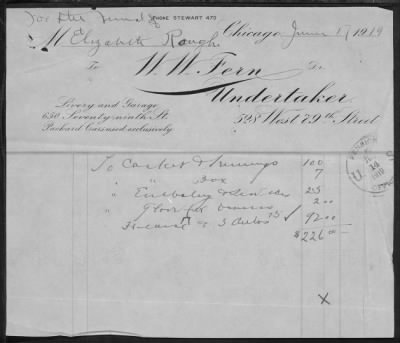 For the funeral of PHONE STEWART 470
M Elizabeth Rough Chicago June 17 1919
To W. W. Fern Dr.
Undertaker
Livery and Garage
650 Seventy-ninth St. 528 West 79th Street
Packard Cars used exclusively
To Casket & Trimmings 100
" Box 7
" Embalmg & Services 25
" Gloves for 2 00
Hearse & 3 Autos 92 00
$226 00
X